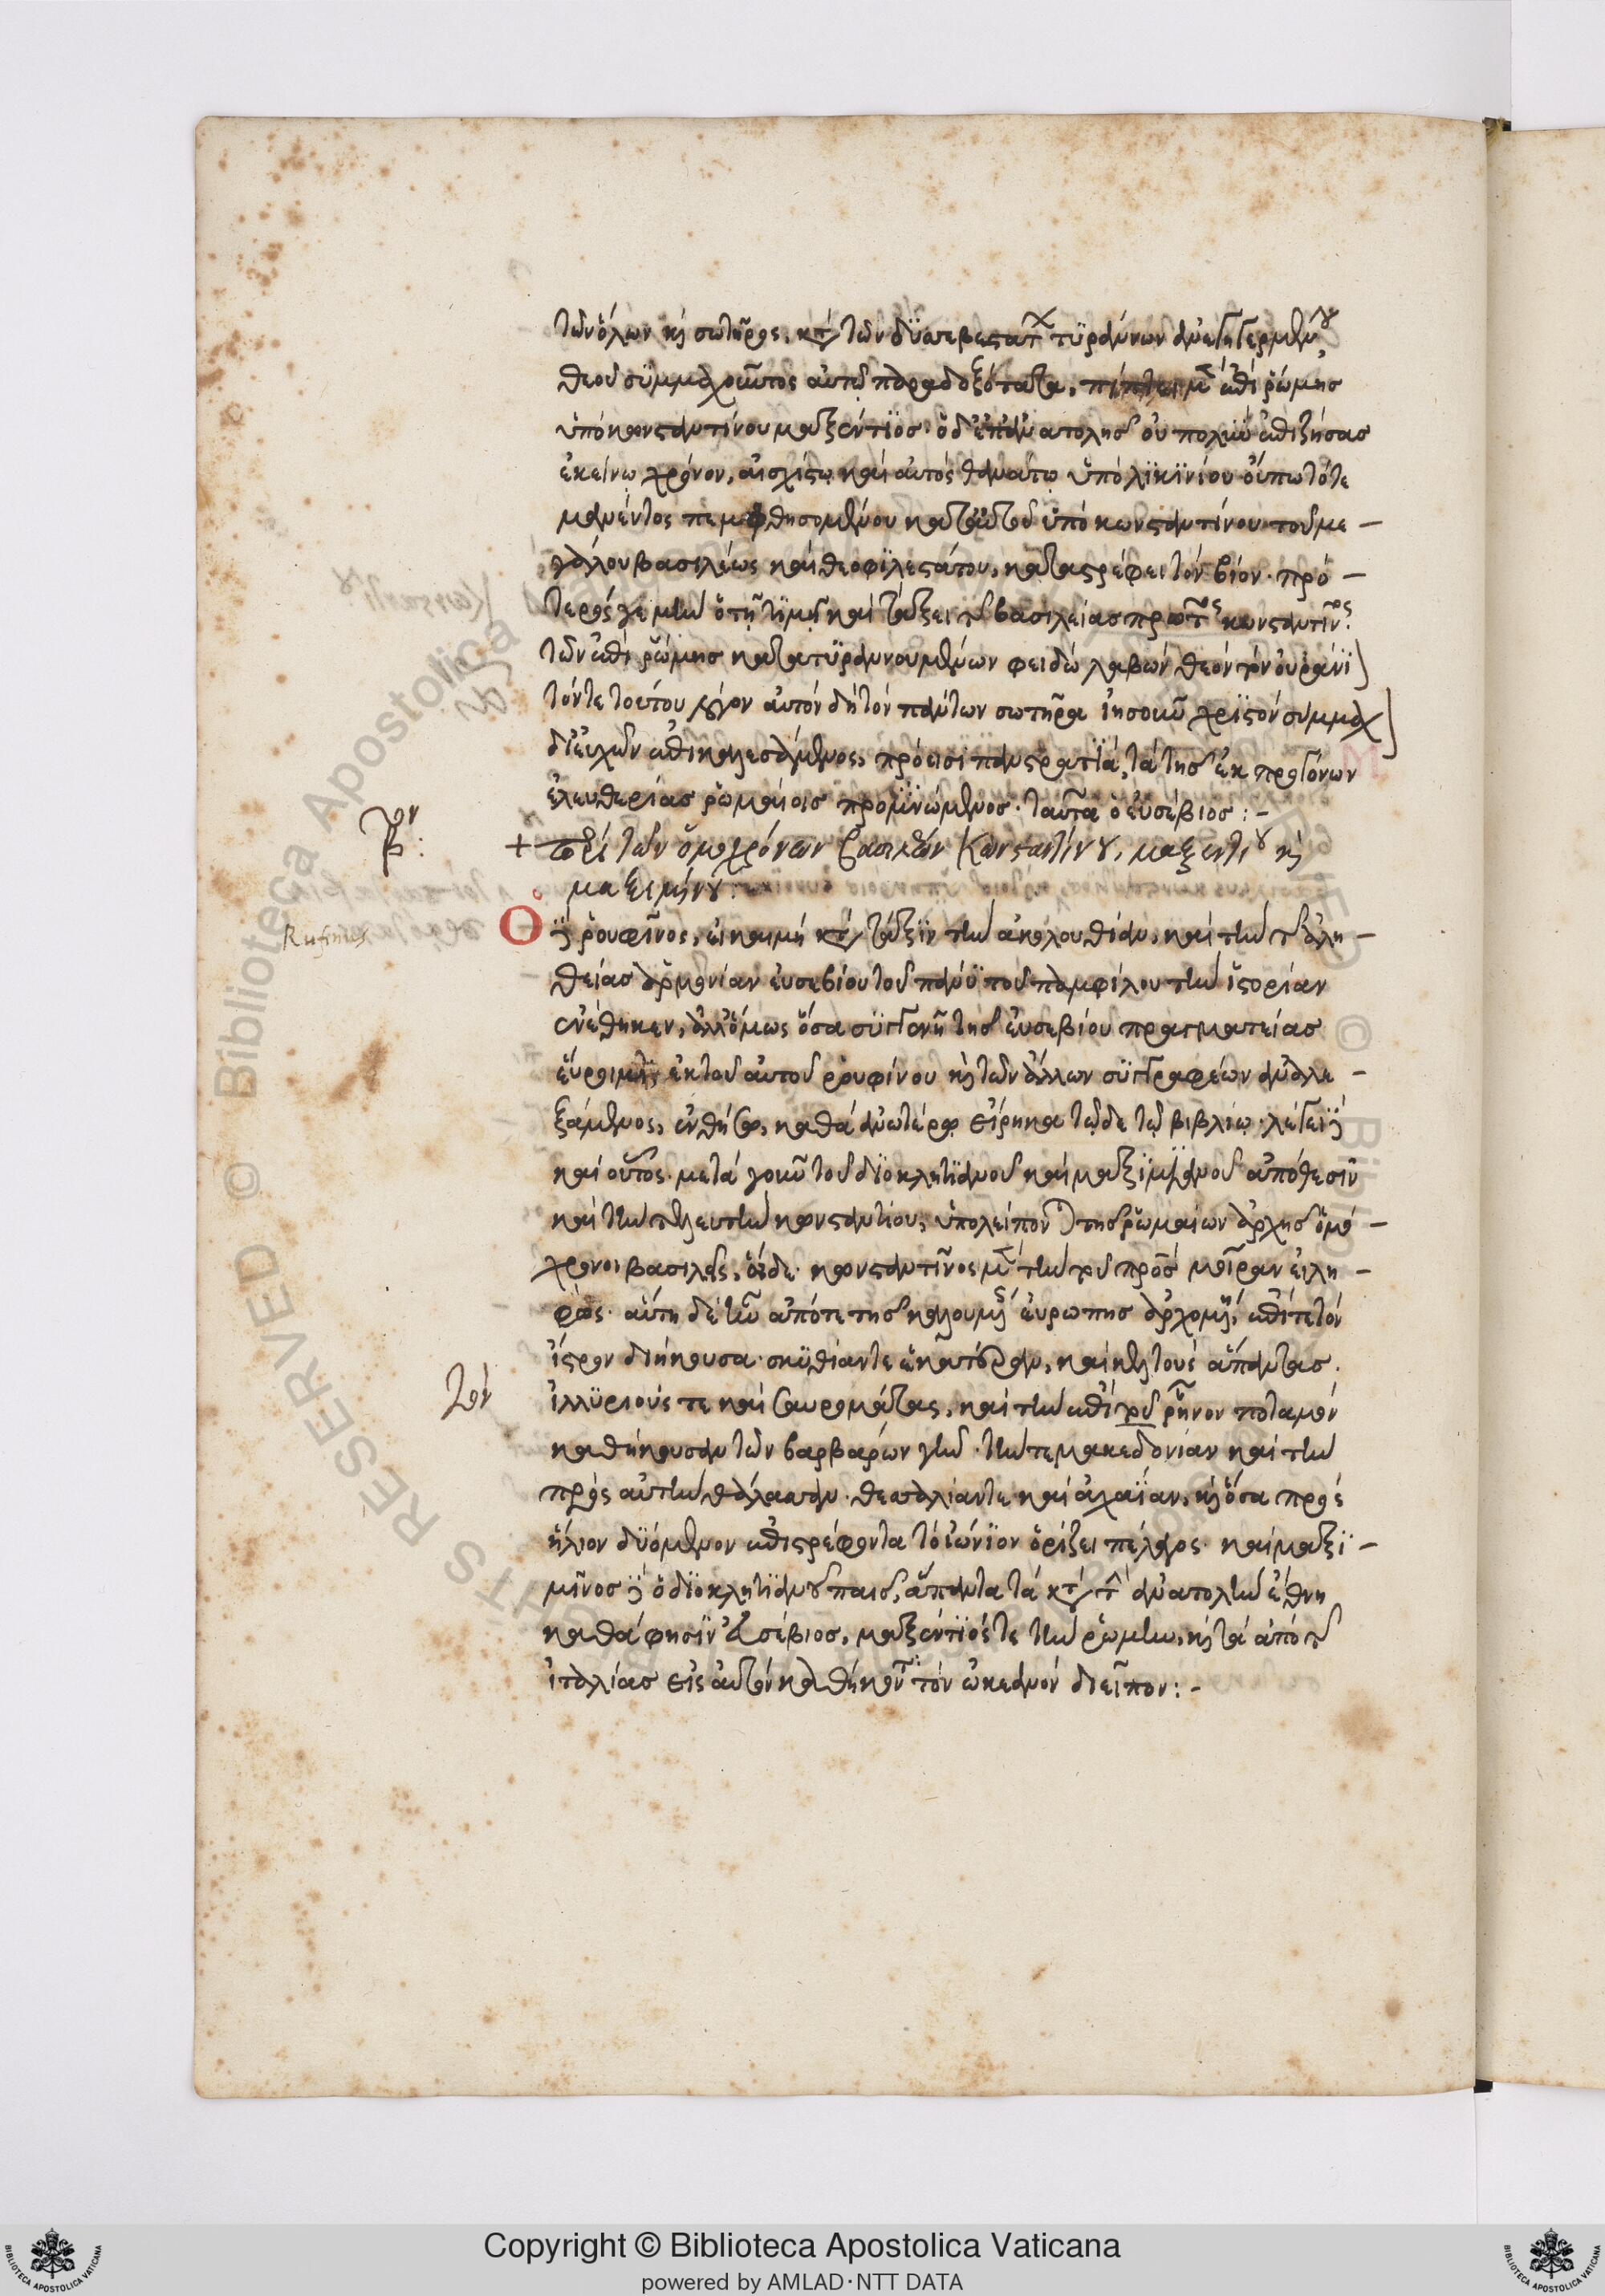 τῶν ὅλων καὶ σωτῆρος, κατὰ τῶν δυσσεβεστάτων τυράννων ἀνεγηγερμένου
θεοῦ συμμαχοῦντος αὐτῷ παραδοξότατα, πίπτει μὲν ἐπὶ ῥώμης
ὑπὸ κωνσταντίνου μαξέντιος· ὁ δ' ἐπ' ἀνατολῆς οὐ πολὺν ἐπιζήσας
ἐκείνω χρόνον, αἰσχίστω καὶ αὐτὸς θανάτω ὑπὸ λικινίου οὔπω τότε
μανέντος πεμφθησομένου κατ' αὐτοῦ ὑπὸ κωνσταντίνου τοῦ με –
γάλου βασιλέως καὶ θεοφιλεστάτου, καταστρέφει τὸν βίον. πρό –
τερός γε μὴν ὁ τῇ τιμῇ καὶ τάξει τῆς βασιλείας πρῶτος κωνσταντῖνος
τῶν ἐπὶ ῥώμης κατατυραννουμένων φειδὼ λαβών θεὸν τὸν οὐράνι
τόν τε τούτου λόγον αὐτὸν δὴ τὸν πάντων σωτῆρα ἰησοῦν χριστὸν σύμμαχ
δι' εὐχῶν ἐπικαλεσάμενος, πρόεισι πανστρατιᾶ, τὰ τῆς ἐκ προγόνων
ἐλευθερίας ῥωμαίοις προμνώμενος. ταῦτα ὁ εὐσέβιος :–
β: ον
+ περὶ τῶν ὁμοχρόνων βασιλέων Κωνσταντίνου, μαξεντίου καὶ
μαξιμίνου :
Rufinus
Ὁ δὲ ῥουφῖνος, εἰ καὶ μὴ κατὰ τάξιν τὴν ἀκολουθίαν, καὶ τὴν τῆς ἀλη –
θείας ἁρμονίαν εὐσεβίου τοῦ πάνυ τοῦ παμφίλου τὴν ἱστορίαν
συνέθηκεν, ἀλλ' ὅμως ὅσα σύντονη τῆς εὐσεβίου πραγματείας
εὕροιμεν, ἐκ τοῦ αὐτοῦ ρουφίνου καὶ τῶν ἄλλων συγγραφέων ἀναλε –
ξάμενος, ἐνθήσω, καθὰ ἀνωτέρω εἴρηκα τῷδε τῷ βιβλίω. λέγει δὲ
καὶ οὗτος. μετὰ γοῦν τοῦ διοκλητιανοῦ καὶ μαξιμιανοῦ ἀπόθεσιν
καὶ τὴν τελευτὴν κωνσταντίου, ὑπολείπονται τῆς ῥωμαίων ἀρχῆς ὁμό –
χρονοι βασιλεῖς, οἵδε. κωνσταντῖνος μὲν τὴν τοῦ πρὸς μοῖραν εἰλη –
φώς. αὕτη δὲ ἦν ἀπό τε τῆς καλουμένης εὐρώπης ἀρχομένη, ἐπί τε τὸν
ἴστρον διήκουσα. σκυθίαν τε ἑκατέραν, καὶ κελτοὺς ἅπαντας.
τὸν
ἰλλυριούς τε καὶ σαυρομάτας, καὶ τὴν ἐπὶ τοῦ ῥῆνον ποταμόν
καθήκουσαν τῶν βαρβάρων γῆν. τήν τε μακεδονίαν καὶ τὴν
πρὸς αὐτὴν θάλασσαν. θεσσαλίαν τε καὶ ἀχαΐαν, καὶ ὅσα πρὸς
ἥλιον δυόμενον ἐπιστρέφοντα τὸ ἰώνιον ὁρίζει πέλαγος. καὶ μαξι –
μῖνος δὲ ὁ διοκλητιανοῦ παῖς, ἅπαντα τὰ κατὰ τὴν ἀνατολὴν ἔθνη
καθά φησιν εὐσέβιος, μαξέντιός τε τὴν ρώμην, καὶ τὰ ἀπὸ τῆς
ἰταλίας εἰς αὐτὸν καθήκοντα τὸν ὠκεανόν διεῖπον :–